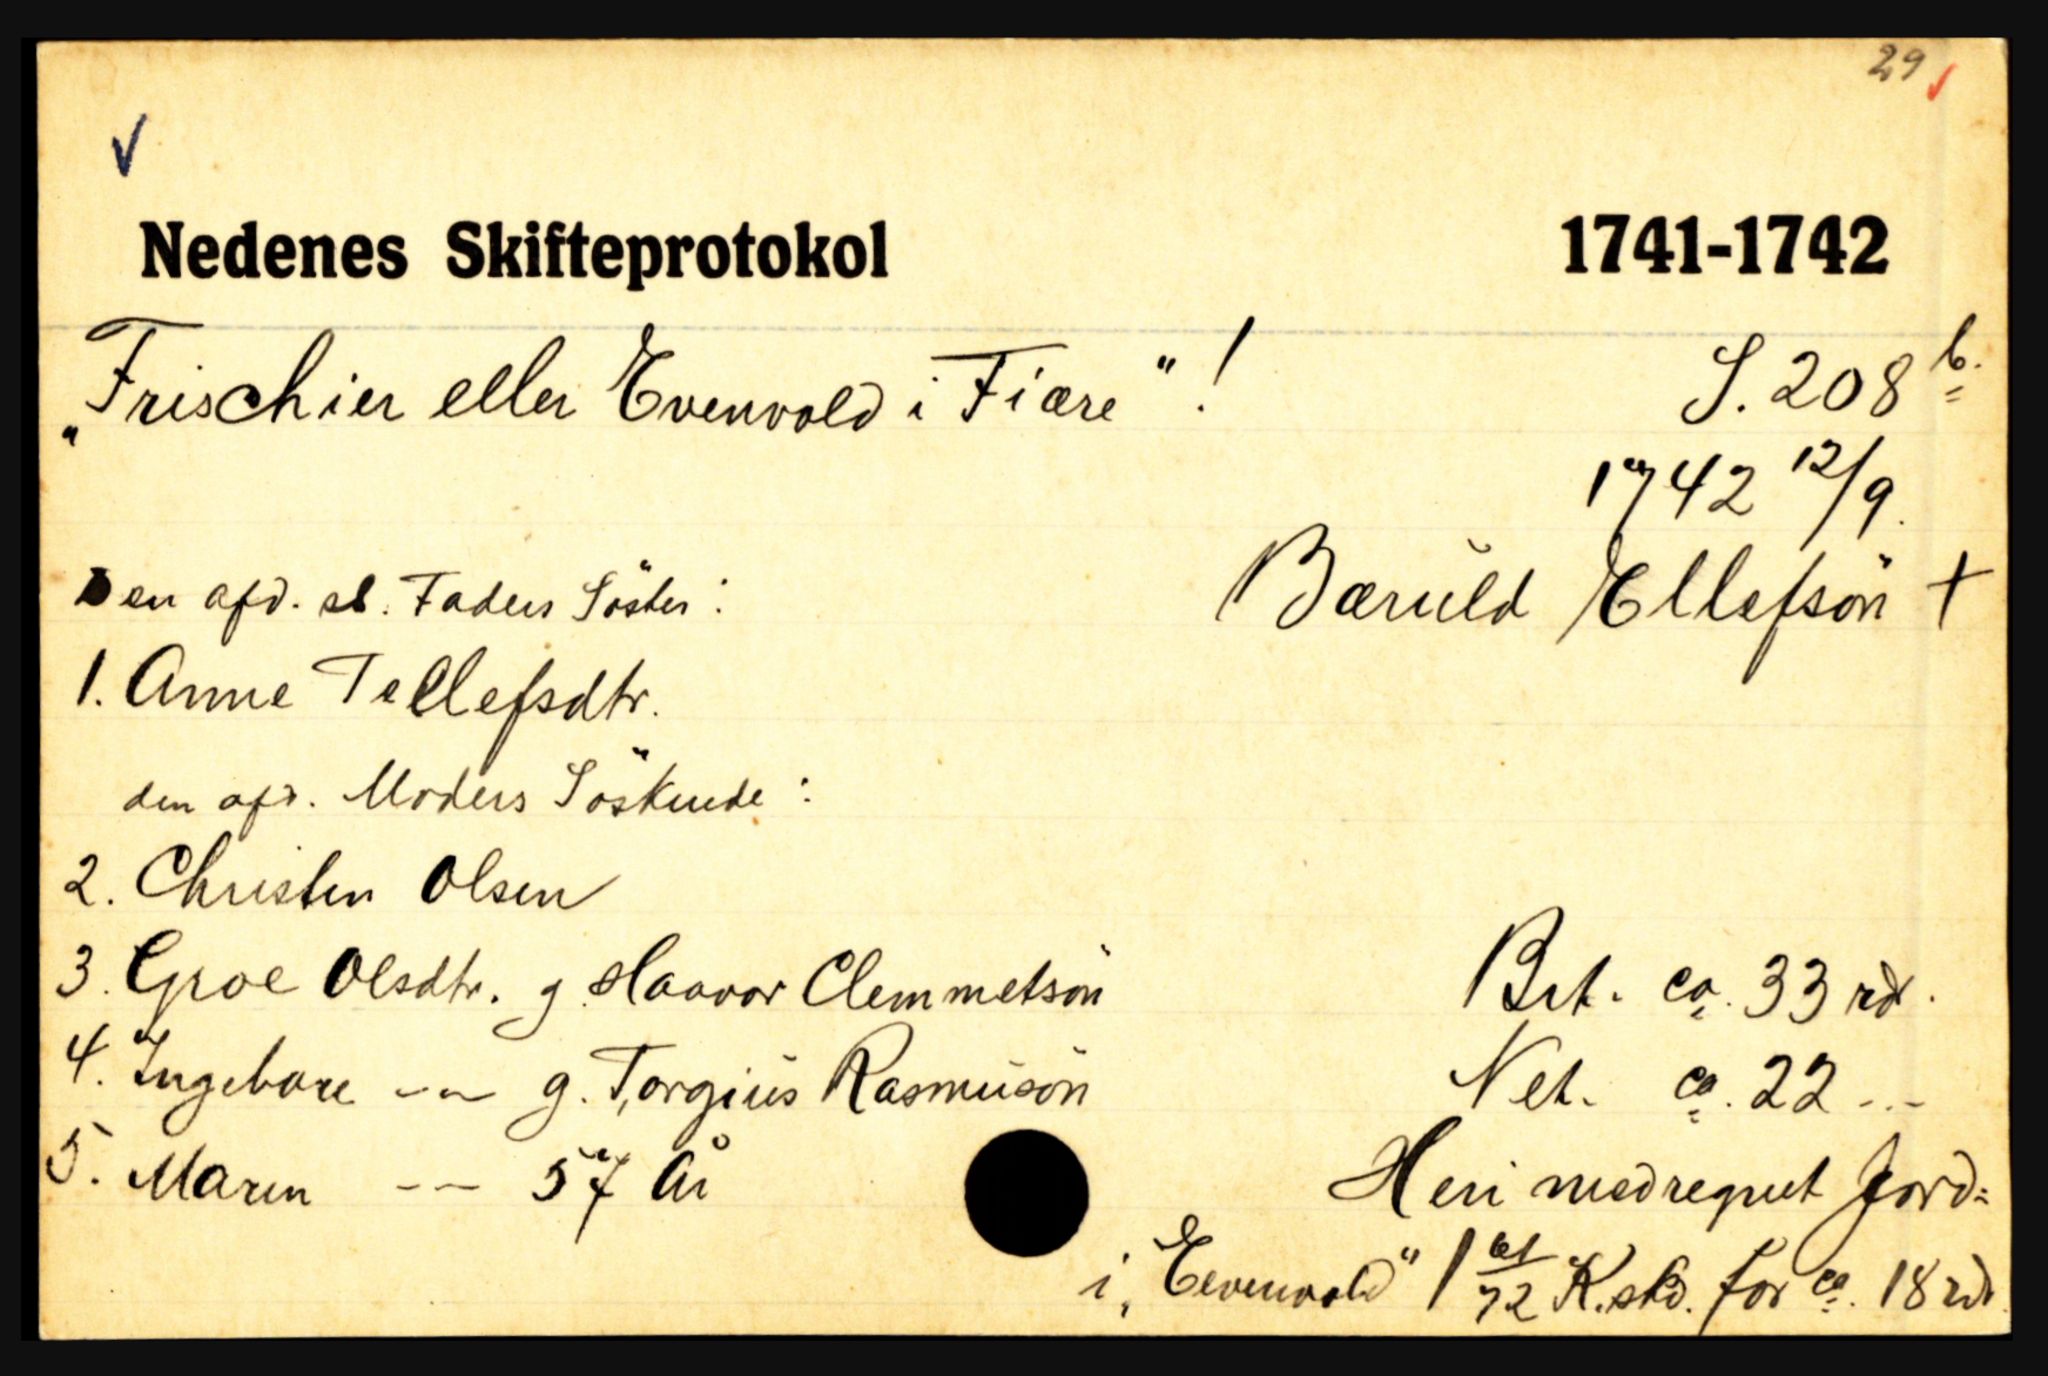 29
Nedenes Skifteprotokol 1741-1742
„Frischier eller Evenvold i Fiære" ! S. 208 b.
1742 12/9.
Den afd. sl. Faders Söster: Bæruld Ellefsön +
1. Anne Tellefsdtr.
den afd. Moders Söskende:
2. Christen Olsen
3. Groe Olsdtr. g. Haavor Clemmetsön Brt. ca. 33 rd.
4. Ingebore -"- g. Torgius Rasmusön Net. ca. 22 -"-
5. Maren -"- 57 År Heri medregnet Jord=
i „Eevenvold" 1 61/72 K.skd. for ca. 18 rdr.